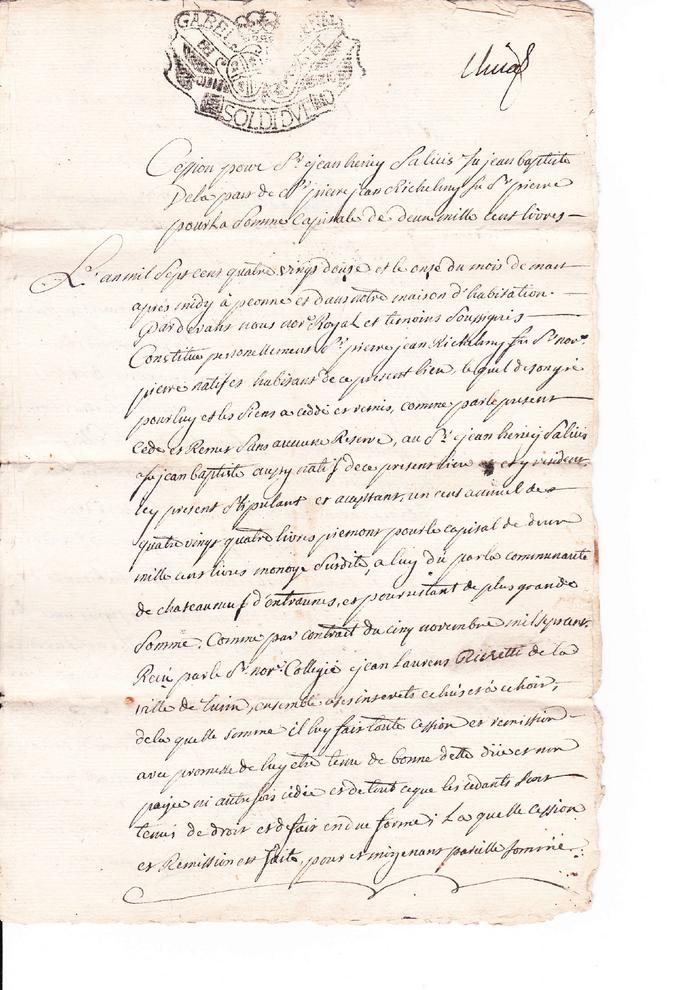 GABEL
SOLDI DVE
Cession pour Sr jean henry Salicis fu jean baptiste
Dela part de Sr pierre jean Richelmy fu Sr pierre
pour la Somme Capitale de deux mille cent livres
L'an mil Sept cens quatre vingt douse et le onse du mois de mars
après midy à peonne et dans notre maison d'habitation
Pardevant nous nore Royal et temoins Soussignés
Constitué personellement Sr pierre jean Richelmy fu Sr nore
pierre natif et habitant de ce present lieu, le quel de son gré
pour luy et les Siens a ceddé et remis, comme par le present
Cede et Remet Sans aucune Reserve, au Sr jean henry Salicis
fu jean baptiste aussy natif de ce present lieu et y resident,
icy present Stipulant et aceptant, un cens annuel de
quatre vingt quatre livres piemont pour le capital de deux
mille cent livres monoye Surdite, a luy dû par la communauté
de chateauneuf d'entraunes, et pour restant de plus grande
Somme, Comme par contrait du cinq novembre mil Sept cens
Reçu par le Sr nore Collegié jean Laurens de la
ville de turin, ensemble a ses interets echús et à echoir,
de la quelle somme il luy fait toute cession et remission
avec promesse de luy etre tenu de bonne dette düe et non
payée ni autre fois cedée et de tout ce que les cedants Sont
tenus de droit et de fait en due forme; La quelle cession
et Remission est faite, pour et moyenant pareille Somme